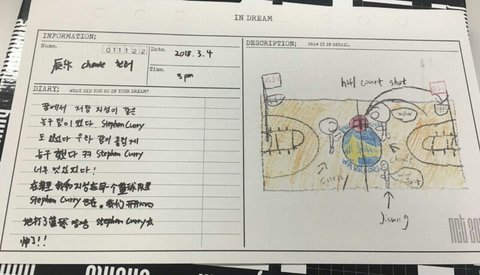 IN DREAM
INFORMATION:
Name.
011122
辰乐 Chenle 천러
Date.
2018. 3. 4
Time.
3 pm
DIARY: WHAT DID YOU DO IN YOUR DREAM?
꿈에서 저랑 지성이 같은
농구 팀이 있다 Stephen Curry
도 있었다 우리 같이 즐겁게
농구 했다 ㅋㅋ Stephen Curry
너무 멋있었다!
在梦里 我和志晟在同一个篮球队里
Stephen Curry 也在。我们 开开心心
地打了篮球 哈哈 Stephen Curry 太
帅了!!
DESCRIPTION: DRAW IT IN DETAIL.
half court shot
wow
WARRIORS
Curry
chenle
Jisung
nct